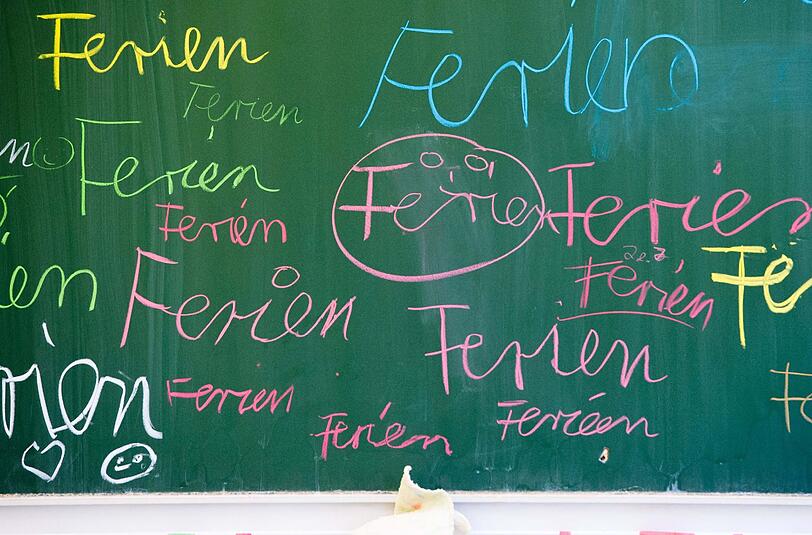 Ferien
Ferien
Ferien
Ferien
Ferien
Ferien
Ferien
Ferien
en
Ferien
Fe
Ferien
Ferien
rien
Ferien
Fe
Ferien
Ferieen